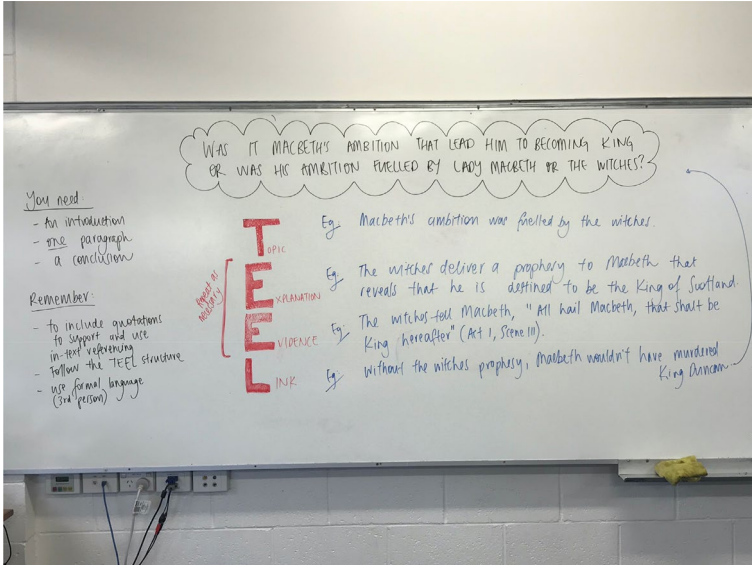 WAS IT MACBETH'S AMBITION THAT LEAD HIM TO BECOMING KING
OR WAS HIS AMBITION FUELLED BY LADY MACBETH OR THE WITCHES?
You need
- An introduction
- one paragraph
- a conclusion
Remember:
- to include quotations
to support and use
in-text referencing
- Follow the TEEL structure
- use formal language
(3rd person)
TOPIC
Eg. Macbeth's ambition was fuelled by the witches.
Repeat as
necessary
EXPLANATION
Eg. The witches deliver a prophecy to Macbeth that
reveals that he is destined to be the King of Scotland.
EVIDENCE
Eg. The witches tell Macbeth, "All hail Macbeth, that shalt be
King hereafter" (Act I, Scene III).
LINK
Eg. Without the witches prophesy, Macbeth wouldn't have murdered
King Duncan